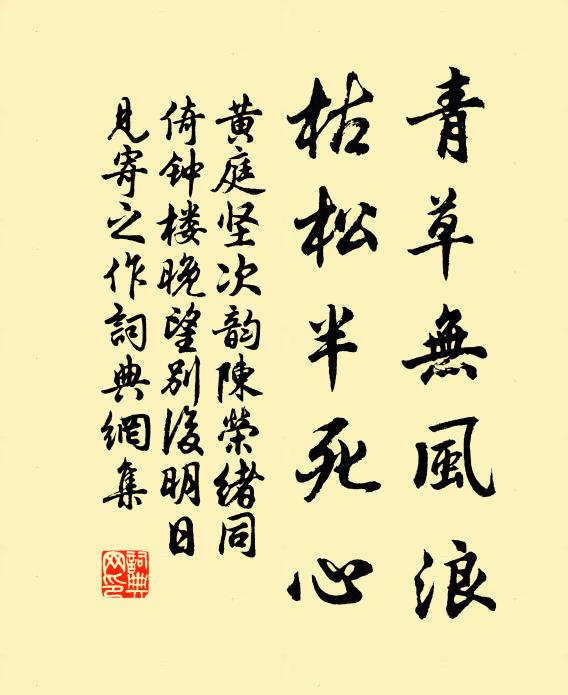 青草無風浪
枯松半死心
黄庭坚次韵陳榮緒同
倚钟楼晚望别後明日
見寄之作詞典網集
詞典
网印